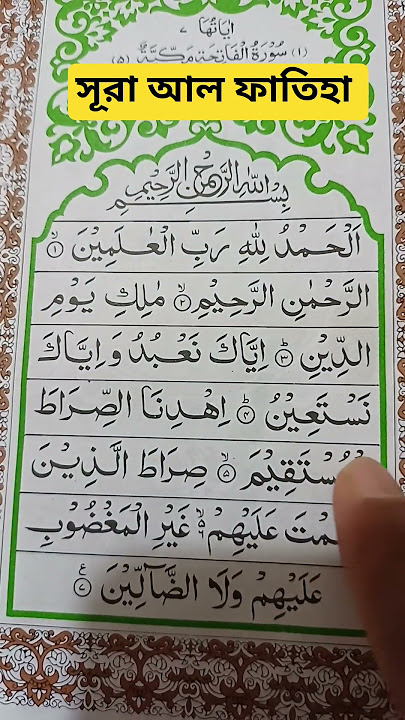 اٰيَاتُهَا ٧
(١) سُوْرَةُ الْفَاتِحَةِ مَكِّيَّةٌ (٥)
সূরা আল ফাতিহা
بِسْمِ اللّٰهِ الرَّحْمٰنِ الرَّحِيْمِ
اَلْحَمْدُ لِلّٰهِ رَبِّ الْعٰلَمِيْنَ ۙ﴿١﴾
الرَّحْمٰنِ الرَّحِيْمِ ۙ﴿٢﴾ مٰلِكِ يَوْمِ
الدِّيْنِ ؕ﴿٣﴾ اِيَّاكَ نَعْبُدُ وَ اِيَّاكَ
نَسْتَعِيْنُ ؕ﴿٤﴾ اِهْدِنَا الصِّرَاطَ
سْتَقِيْمَ ۙ﴿٥﴾ صِرَاطَ الَّذِيْنَ
مْتَ عَلَيْهِمْ ۙ۬﴿٦﴾ غَيْرِ الْمَغْضُوْبِ
عَلَيْهِمْ وَلَا الضَّآلِّيْنَ ﴿٧﴾ۧ